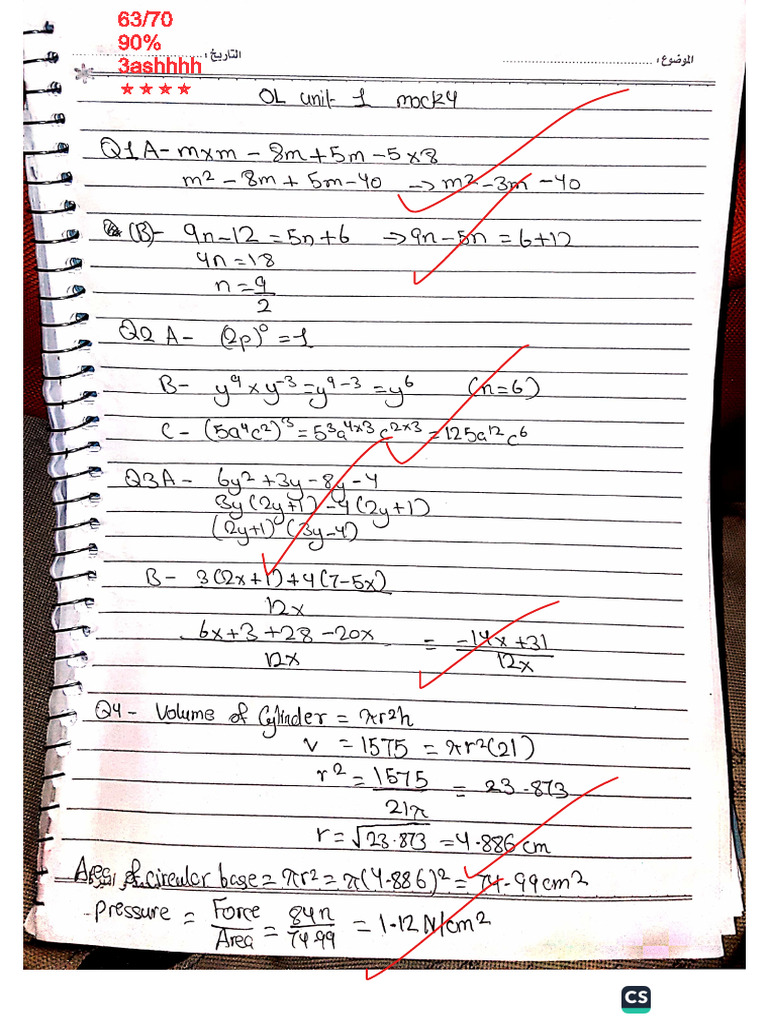 63/70
90%
3ashhhh
الموضوع : التاريخ :
OL unit 1 mock 4
Q1 A- m×m - 8m + 5m - 5×8
m² - 8m + 5m - 40 → m² - 3m - 40
(B)- 9n - 12 = 5n + 6 → 9n - 5n = 6 + 12
4n = 18
n = 9/2
Q2 A- (2p)⁰ = 1
B- y⁹ × y⁻³ = y⁹⁻³ = y⁶ (n=6)
C- (5a⁴c²)³ = 5³a⁴ˣ³ c²ˣ³ = 125a¹²c⁶
Q3 A- 6y² + 3y - 8y - 4
3y(2y+1) - 4(2y+1)
(2y+1) (3y-4)
B- 3(2x+1) + 4(7-5x) / 12x
6x + 3 + 28 - 20x / 12x = -14x + 31 / 12x
Q4- Volume of Cylinder = πr²h
v = 1575 = πr²(21)
r² = 1575 / 21π = 23.873
r = √23.873 = 4.886 cm
Area of circular base = πr² = π(4.886)² = 74.99 cm²
Pressure = Force / Area = 84n / 74.99 = 1.12 N/cm²
CS